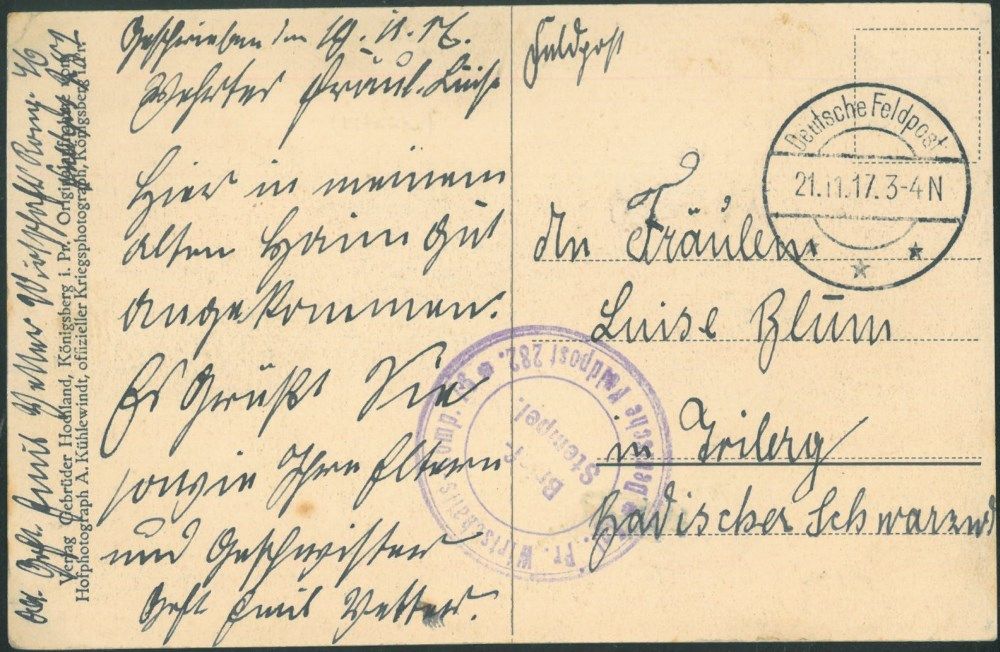 Geschrieben den 19.11.17.
Wehrtes Fräul. Luise
Hier in meinem
alten Heim gut
angekommen.
Es Grüßt Sie
sowie Ihre Eltern
und Geschwister
Gefr Emil Vetter.
Feldpost
Deutsche Feldpost
21.11.17. 3-4 N
An Fräulein
Luise Blum
in Triberg
Badischer Schwarzwd
Pr. Wirtschafts Komp.
Deutsche Feldpost 282.
Briefstempel.
Abs. Gefr. Emil Vetter Wirtschafts Komp.
Verlag Gebrüder Hochland, Königsberg i. Pr. Originalaufnahme von
Hofphotograph A. Kühlewindt, offizieller Kriegsphotograph, Königsberg i. Pr.